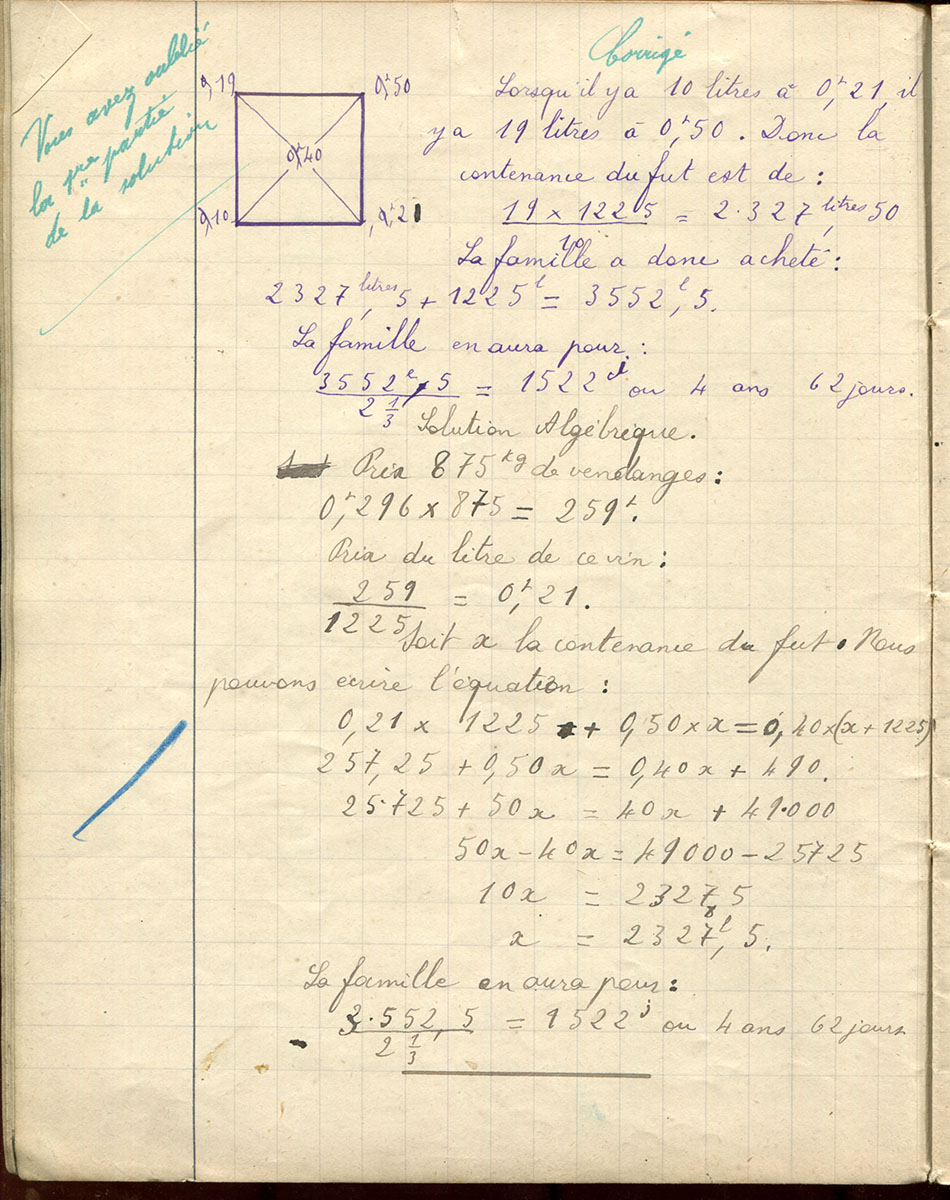 Corrigé
Vous avez oublié
la 1ère partie
de la solution
0,19 0f,50
0f,40
0,10 0f,21
Lorsqu'il y a 10 litres à 0f,21, il
y a 19 litres à 0f,50. Donc la
contenance du fut est de :
19 x 1225 / 10 = 2.327,litres 50
La famille a donc acheté :
2327,litres 5 + 1225l = 3552l,5.
La famille en aura pour :
3552l,5 / 2 1/3 = 1522j ou 4 ans 62 jours.
Solution Algébrique.
Prix 875kg de vendanges :
0f,296 x 875 = 259f.
Prix du litre de ce vin :
259 / 1225 = 0f,21.
Soit x la contenance du fut. Nous
pouvons écrire l'équation :
0,21 x 1225 + 0,50 x x = 0,40 x (x + 1225)
257,25 + 0,50x = 0,40x + 490.
25.725 + 50x = 40x + 49.000
50x - 40x = 49000 - 25725
10x = 2327,5
x = 2327l,5.
La famille en aura pour :
3.552,5 / 2 1/3 = 1522j ou 4 ans 62 jours